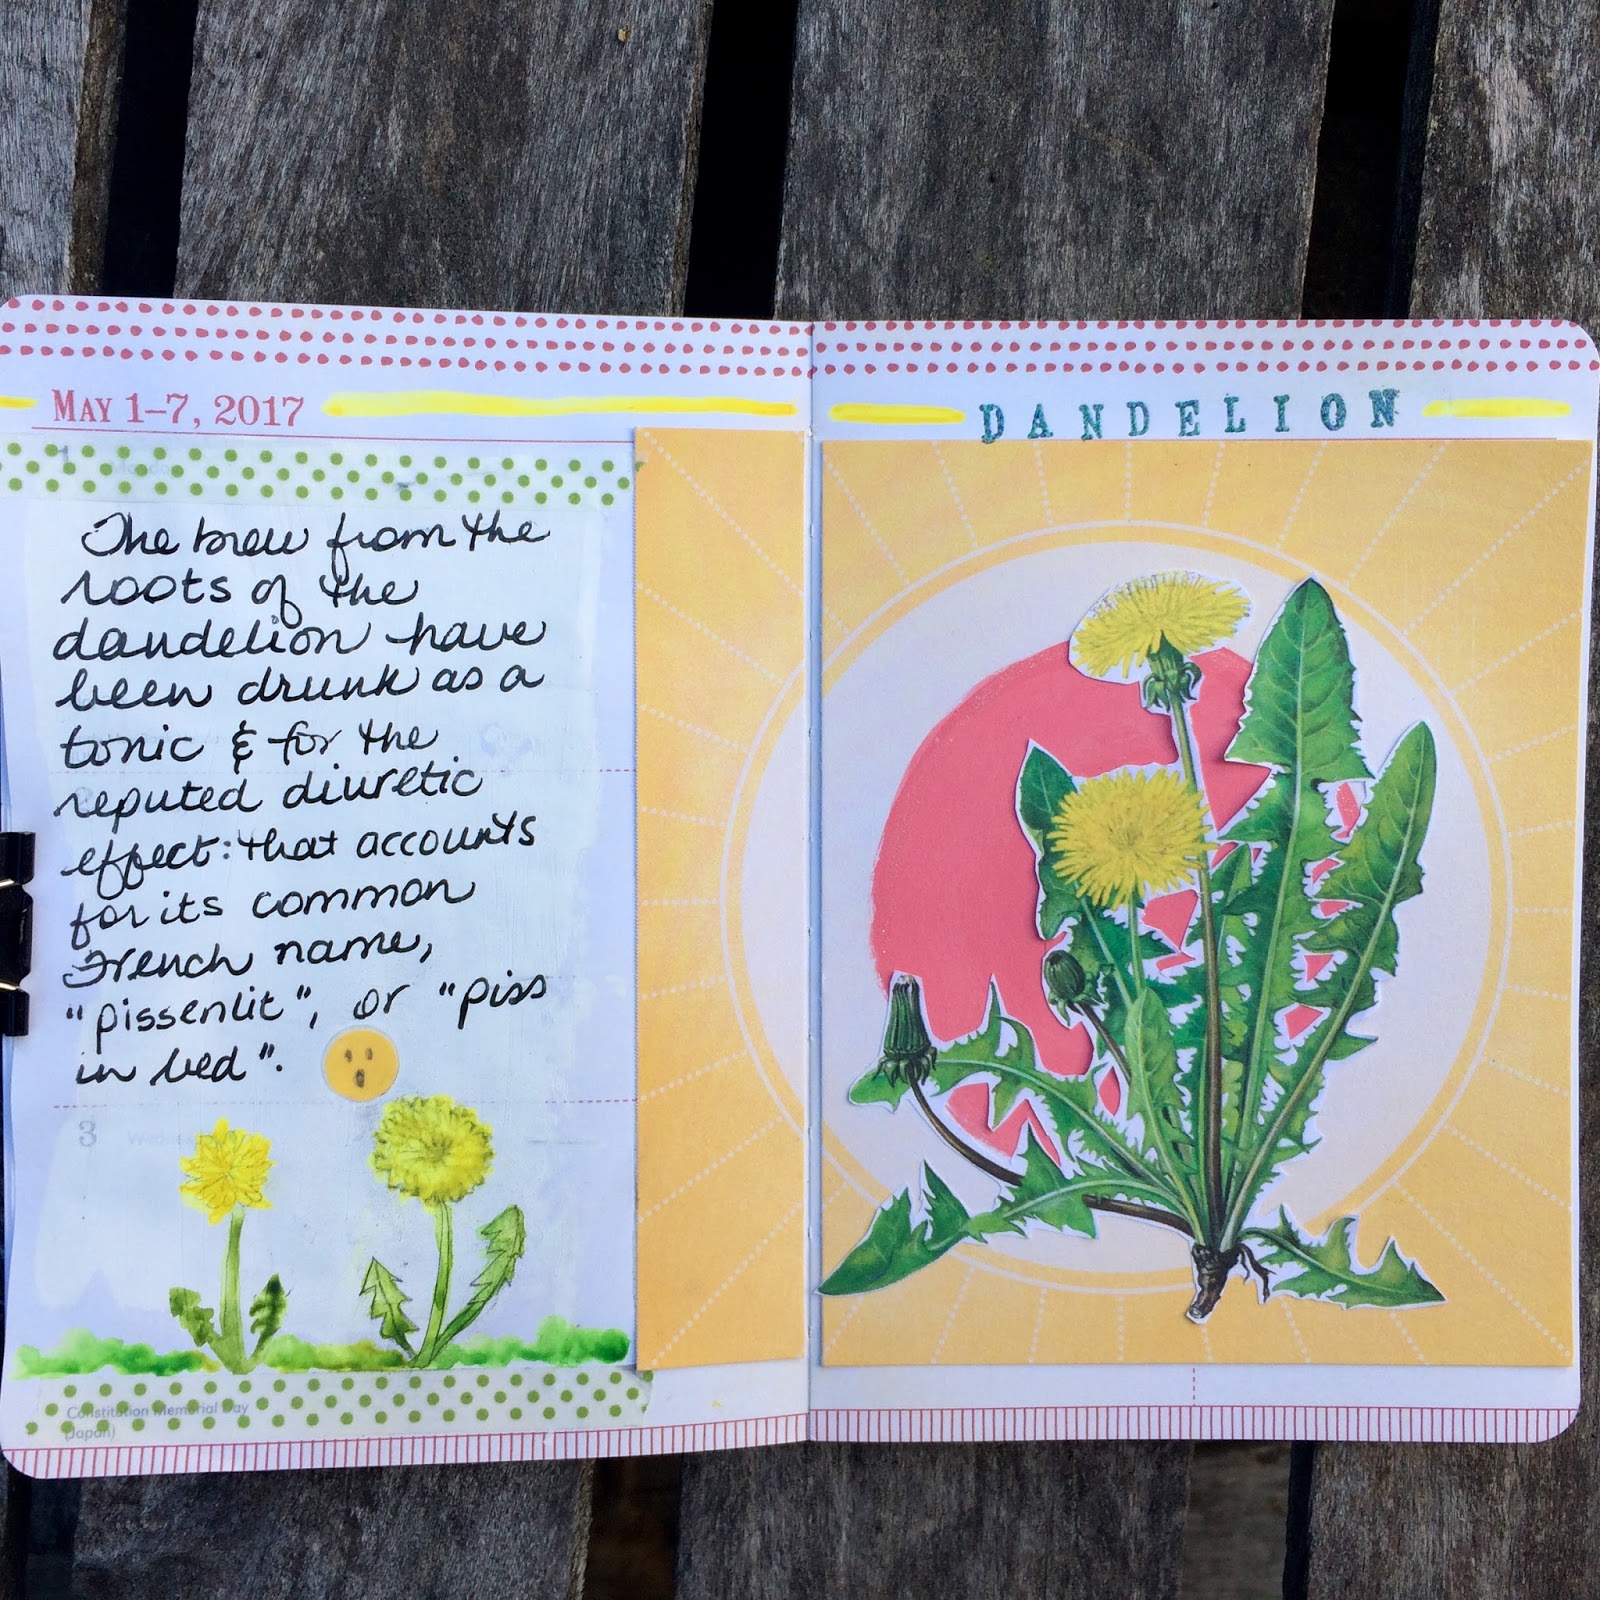 MAY 1–7, 2017
DANDELION
The brew from the
roots of the
dandelion have
been drunk as a
tonic & for the
reputed diuretic
effect: that accounts
for its common
French name,
"pissenlit", or "piss
in bed".
3 Wednesday
Constitution Memorial Day
(Japan)